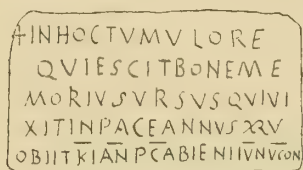 +INHOCTVMVLORE
QVIESCITBONEME
MORIVSVRSVSQVIVI
XITINPACEANNVSXXV
OBIITKIANPCABIENIIVNVCON